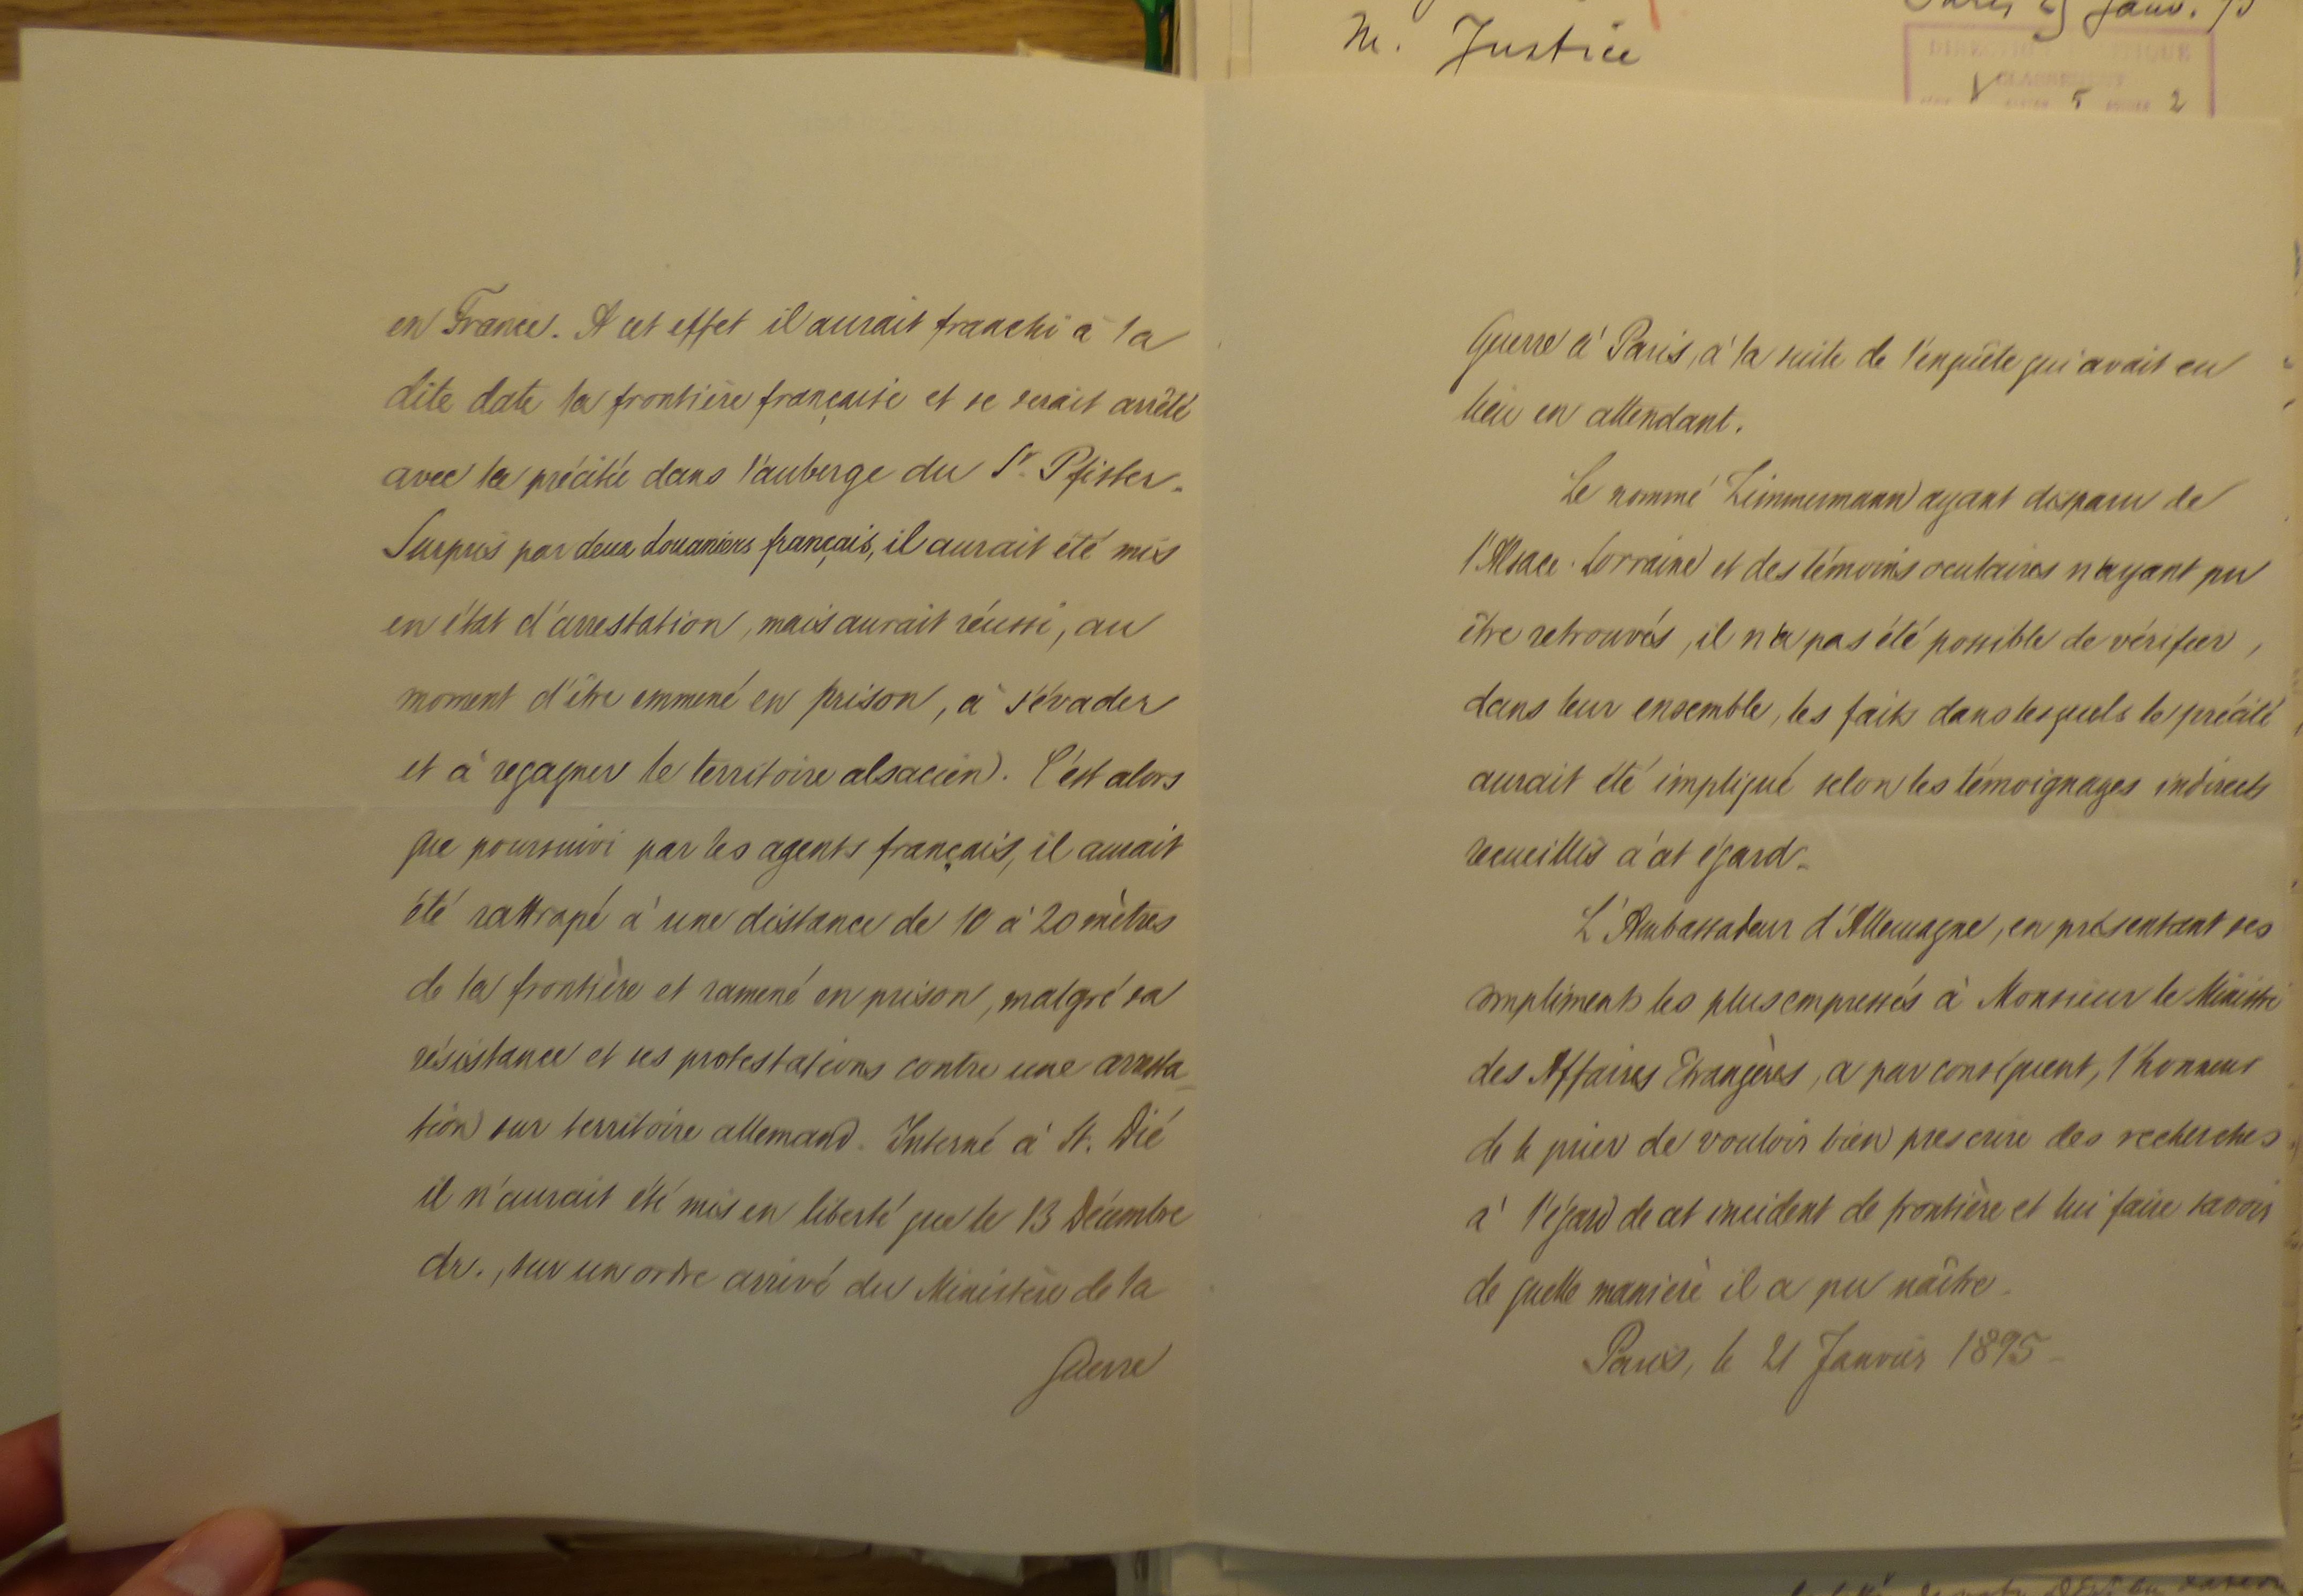 en France. A cet effet il aurait franchi à la
dite date la frontière française et se serait arrêté
avec la précitée dans l'auberge du Sr. Pfister.
Surpris par deux douaniers français, il aurait été mis
en état d'arrestation, mais aurait réussi, au
moment d'être emmené en prison, à s'évader
et à regagner le territoire alsacien. C'est alors
que poursuivi par les agents français, il aurait
été rattrapé à une distance de 10 à 20 mètres
de la frontière et ramené en prison, malgré sa
résistance et ses protestations contre une arresta-
tion sur territoire allemand. Interné à St. Dié
il n'aurait été mis en liberté que le 13 Décembre
dr., sur un ordre arrivé du Ministère de la
Guerre
M. Justice
Paris 25 Janv.
CLASSEMENT
5 2
Guerre à Paris, à la suite de l'enquête qui avait eu
lieu en attendant.
Le nommé Zimmermann ayant disparu de
l'Alsace-Lorraine et des témoins oculaires n'ayant pu
être retrouvés, il n'a pas été possible de vérifier,
dans leur ensemble, les faits dans lesquels le précité
aurait été impliqué selon les témoignages indirects
recueillis à cet égard.
L'Ambassadeur d'Allemagne, en présentant ses
compliments les plus empressés à Monsieur le Ministre
des Affaires Etrangères, a par conséquent, l'honneur
de le prier de vouloir bien prescrire des recherches
à l'égard de cet incident de frontière et lui faire savoir
de quelle manière il a pu naître.
Paris, le 21 Janvier 1895.